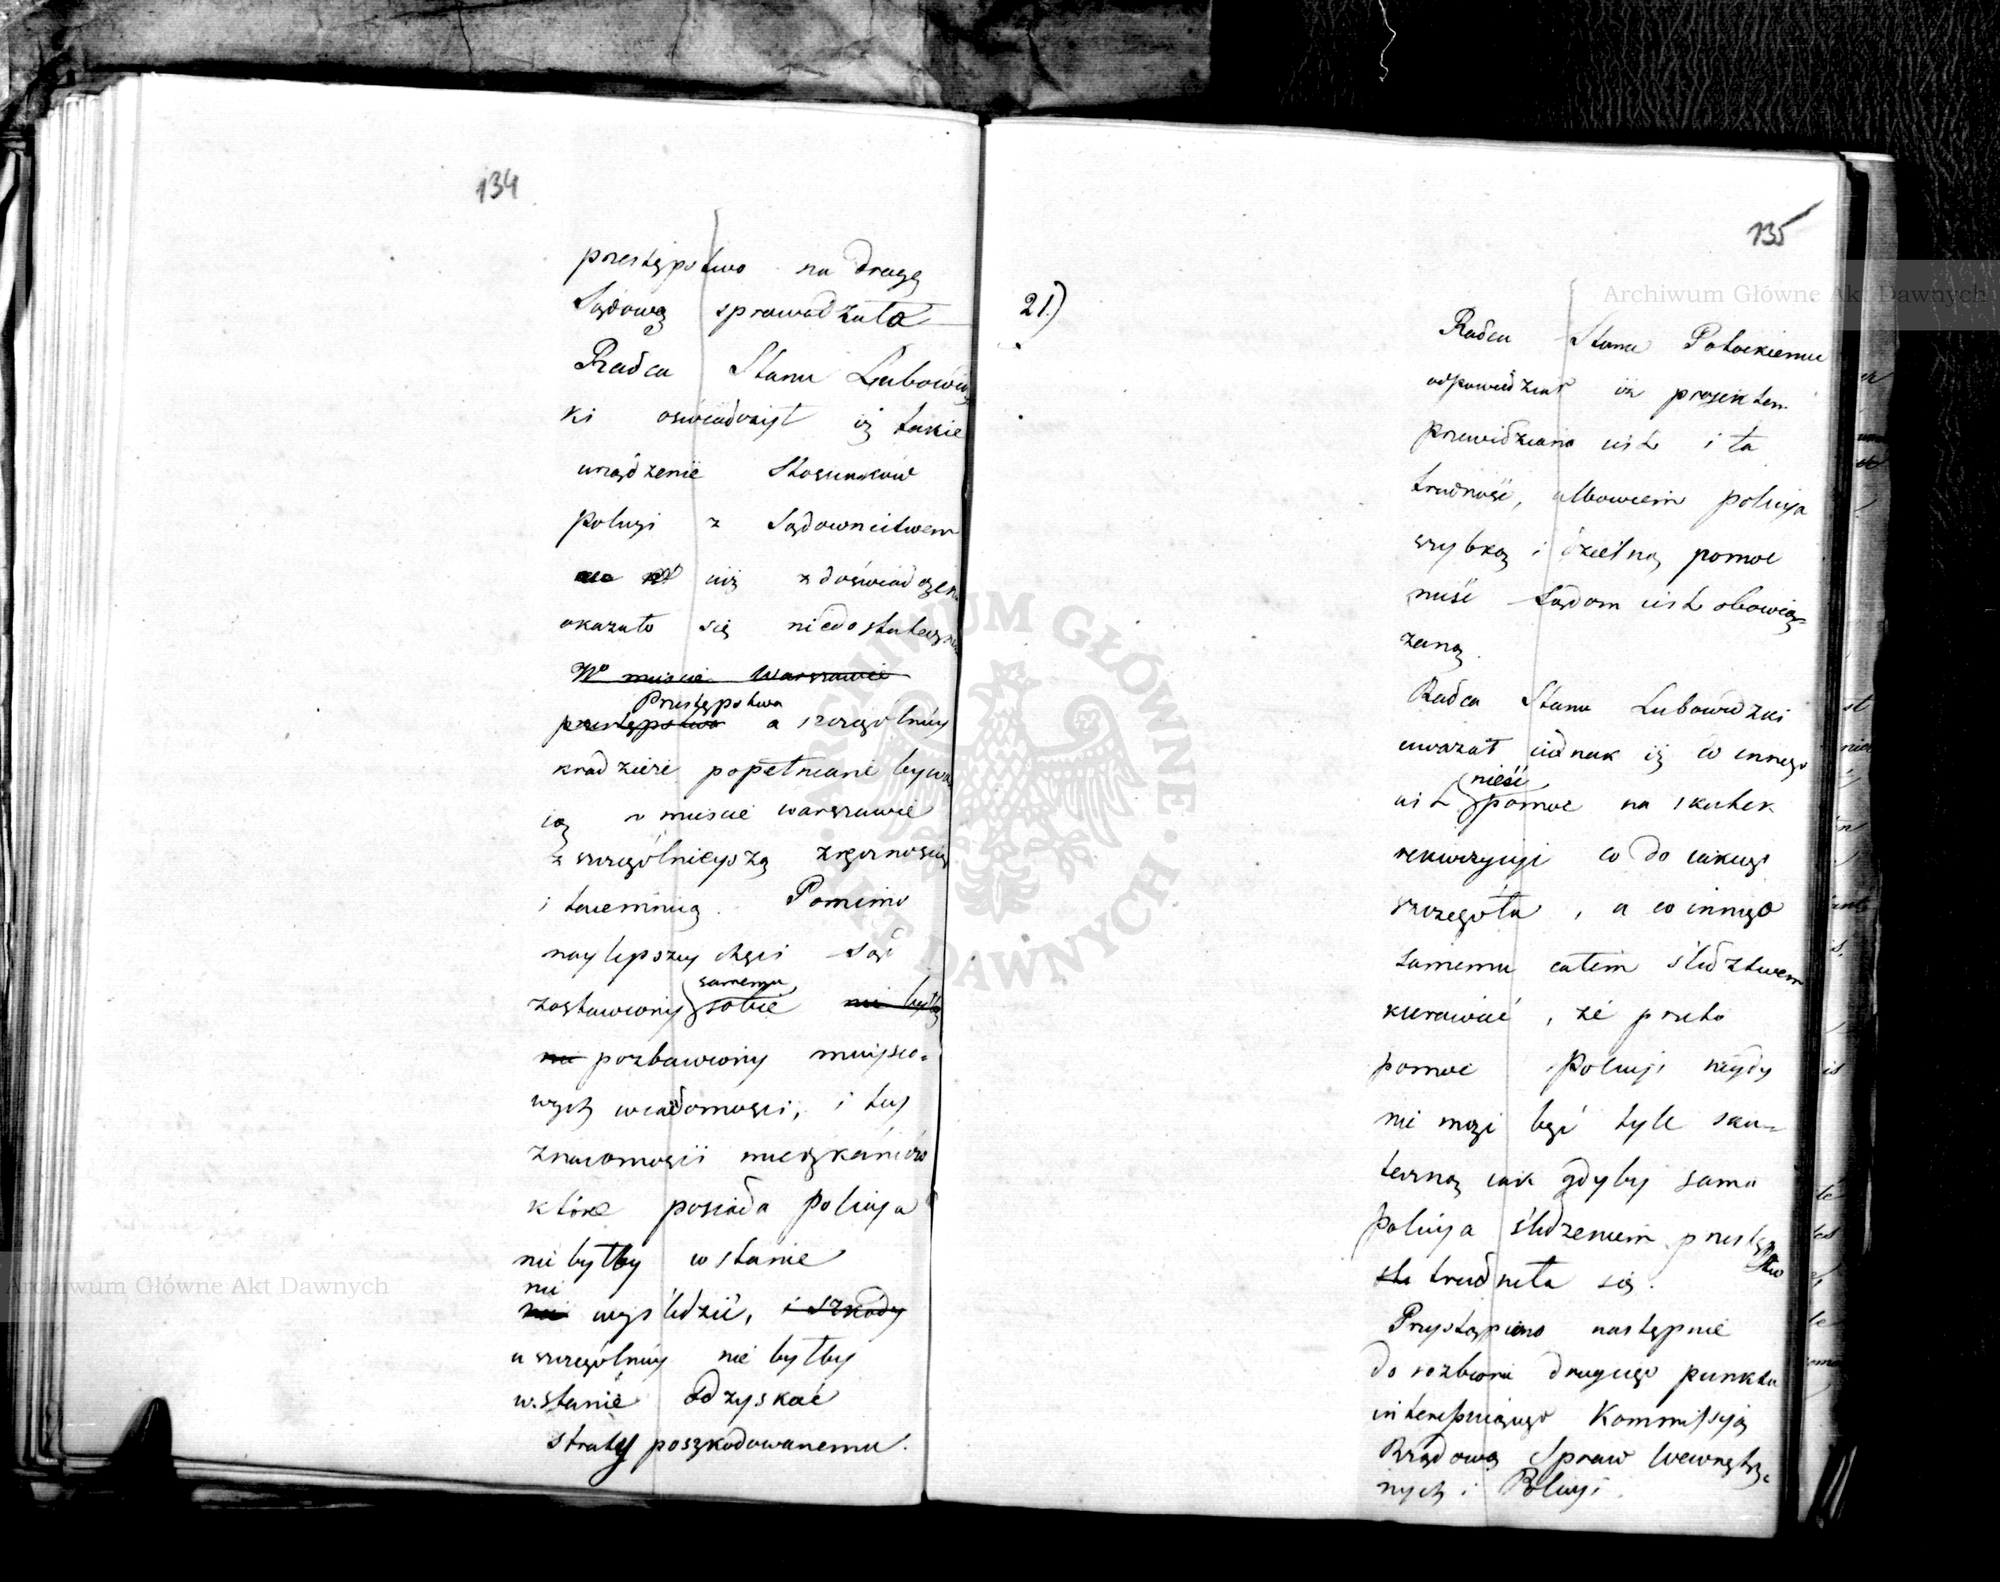 134
przestępstwo na drogę
Sądową sprowadzała
Radca Stanu Lubowidz
ki oświadczył iż takie
urządzenie stosunków
Policyi z Sądownictwem
iuż z doświadczenia
okazało się niedostateczne
W mieście Warszawie
Przestępstwa
przestępstwa a szczególniey
kradzieże popełniane bywa
ią w mieście warszawie
z szczególnieyszą zręcznością
i taiemnicą. Pomimo
naylepszey chęci Sąd
samemu
zostawiony sobie nie byłby
nie pozbawiony mieysco=
wych wiadomości, i tey
znaiomości mieszkańców
które posiada Policya
nie byłby w stanie
nic
wyśledzić, i szkody
a szczególniey nie byłby
w stanie odzyskać
straty poszkodowanemu.
135
21.)
Radca Stanu Potockiemu
odpowiedział iż projektem
przewidziana iest i ta
trudność, albowiem policya
szybką i dzielną pomoc
nieść Sądom iest obowią=
zaną.
Radca Stanu Lubowidzki
uważał iednak iż co innego
nieść
iest pomoc na skutek
rekwizycyi co do iakiego
szczegółu, a co innego
samemu całem śledztwem
kierować, że przeto
pomoc Policyi nigdy
nie może być tyle sku=
teczną iak gdyby sama
Policya śledzeniem przestęp
stw
st trudniła się.
Przystąpiono następnie
do rozbioru drugiego punktu
interessuiącego Kommissyą
Rządową Spraw Wewnętrz=
nych i Policyi.
Archiwum Główne Akt Dawnych
Archiwum Główne Akt Dawnych
ARCHIWUM GŁÓWNE AKT DAWNYCH